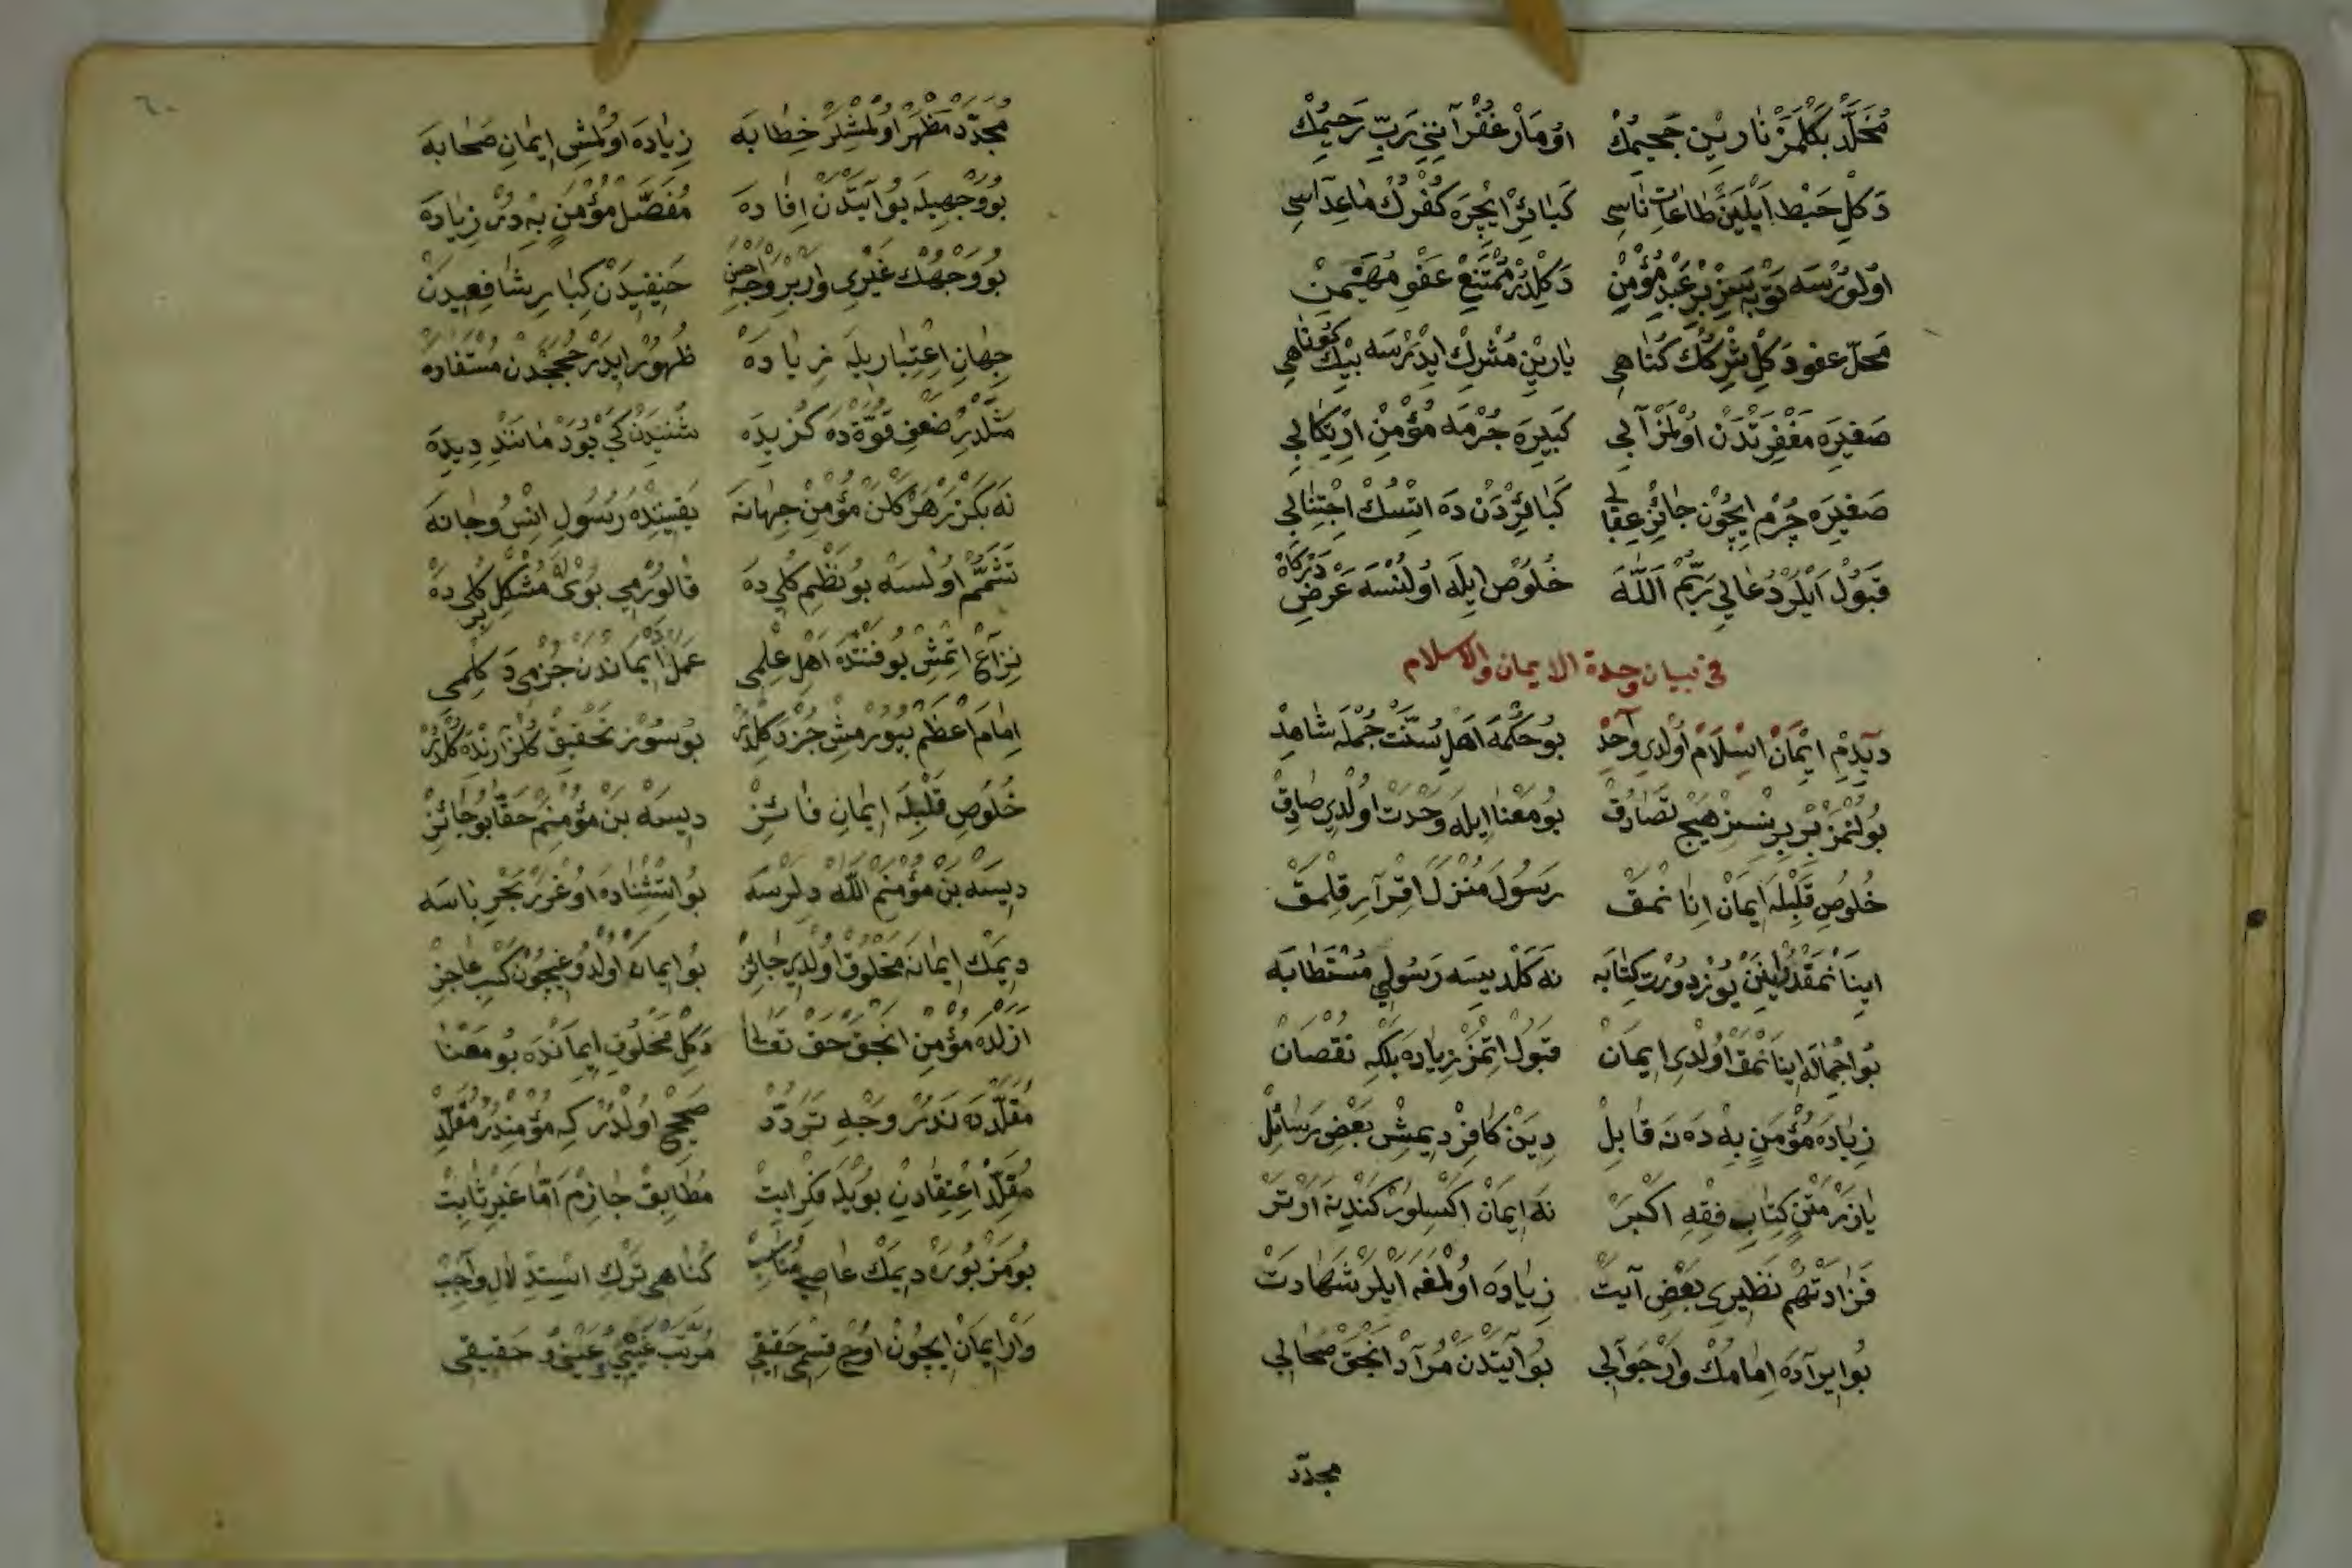 مُخَلَّد بَكْلَمَزْ نَارِينِ جَحِيمُكْ اُومَارْ غُفْرَانِنِي رَبِّ رَحِيمُكْ
دَكِلْ حَبْط اَيْلَيَنْ طَاعَاتِ نَاسِي كَبَائِرْ اِيچْرَه كُفْرُكْ مَاعِدَاسِي
اُولُورْسَه تَوْبَه سِزْ بِرْ عَبْدِ مُؤْمِنْ دَكِلْدُرْ مُمْتَنِعْ عَفْوِ مُهَيْمِنْ
مَحَلِّ عفو دَكِلْ شِرْكُكْ كُنَاهِي يَارِينِ مُشْرِكْ اِيدَرْسَه بِيكْ كُونَاهِي
صَغِيرَه مَغْفِرَتْدَنْ اُولْمَزْ آلِي كَبِيرَه جُرْمَه مُؤْمِنْ اِرْتِكَابِي
صَغِيرَه جُرْم اِيچُونْ جَائِز عِقَابِي كَبَائِرْدَنْ دَه اِتْسُكْ اِجْتِنَابِي
قَبُولْ اَيْلَرْ دُعَايِي رَبِّمْ اَللّٰه خُلُوصْ اِيلَه اُولُنْسَه عَرْضِ دَرْكَاهْ
في بيان وحدة الايمان والاسلام
دِيدِمْ اِيمَانْ اِسْلَامْ اُولْدِي وَاحِدْ بُو حُكْمَه اَهْلِ سُنَّتْ جُمْلَه شَاهِدْ
بُولُنْمَزْ بِرْبِرِنْسِزْ هِيچْ تَصَادُقْ بُو مَعْنَا اِيلَه وَحْدَتْ اُولْدِي صَادِقْ
خُلُوصِ قَلْبِلَه اِيمَانْ اِنَانْمَقْ رَسُولَ مُنْزَلَ اِقْرَارِ قِلْمَقْ
اِينَانْمَقْدُرْ يُوز دُورْت كِتَابَه نَه كَلْدِيسَه رَسُولِ مُسْتَطَابَه
بُو اِجْمَالَه اِينَانْمَقْ اُولْدِي اِيمَانْ قَبُولْ اِتْمَزْ زِيَادَه بَلْكِه نُقْصَانْ
زِيَادَه مُؤْمَنٍ بِهْ دَه نَه قَابِلْ دِيَنْ كَافِرْ دِيمِشْ بَعْضِ رَسَائِلْ
يَازَرْ مَتْنِ كِتَابِ فِقْهِ اَكْبَرْ نَه اِيمَانْ اَكْسِلُورْ كَنْدِ نَه اَرْتَرْ
فَزَادَتْهُمْ نَظِيرِي بَعْضِ آيَتْ زِيَادَه اُولْمَغَه اَيْلَرْ شَهَادَتْ
بُو اِيرَادَه اِمَامُكْ وَارْ جَوَابِي بُو آيَتْدَنْ مُرَادْ اَنْجَقْ صَحَابِي
مجدّد
٦٠
مُجَدَّد مَظْهَرْ اُولْمِشْلَرْ خِطَابَه زِيَادَه اُولْمِشِ اِيمَانِ صَحَابَه
بُو وَجْهِيلَه بُو آيَتْدَنْ اِفَادَه مُفَصَّلْ مُؤْمَنٍ بِهْ دُرْ زِيَادَه
بُو وَجْهُكْ غَيْرِي وَارْ بِرْ وَجْهِ اَحْسَنْ حَنِيفِيدَنْ كِبَارِ شَافِعِيدَنْ
جِهَانِ اِعْتِبَارِيلَه زِيَادَه ظُهُورْ اِيدَرْ حُجَجْدَنْ مُسْتَفَادَه
مَثَلْدِرْ ضَعْفِ قُوَّتْدَه كُزِيدَه شُنِيدَنْ كَيْ بُوَدْ مَانَنْدِ دِيدَه
نَه بَكْزَرْ هَرْ كَلَنْ مُؤْمِنْ جِهَانَه يَقِينِنْدَه رَسُولِ اِنْس وجَانَه
تَشَمُّمْ اُولْسَه بُو نَظْمِ كُلِي دَه قَالُورْمِي بُويَلَه مُشْكِلْ بِرْ كُلِي دَه
نِزَاعْ اِتْمِشْ بُو فَنْدَه اَهْلِ عِلْمِي عَمَلْ اِيمَانْدَنْ جُزْءمِي دَكِلْمِي
اِمَامِ اَعْظَمْ بُيُورْمِشْ جُزْء دَكِلْدُرْ بُو سُوزْ تَحْقِيقِ كُلْزَارِنْدَه كُلْدُرْ
خُلُوصِ قَلْبِلَه اِيمَانِ فَائِزْ دِيسَه بَنْ مُؤْمِنِمْ حَقَّا بُو جَائِزْ
دِيسَه بَنْ مُؤْمِنِمْ اَللّٰه دِلَرْسَه بُو اِسْتِثْنَادَه اُوغْرَرْ بَحْرِ بَاسَه
دِيمَكْ اِيمَانَه مَخْلُوقْ اُولْدِي جَائِزْ بُو اِيمَانْ اُولْدُوغِيچُونْ كَسْبِ عَاجِزْ
اَزَلْدَه مُؤْمِنْ اَنْجَقْ حَقْ تَعَالٰى دَكِلْ مَخْلُوقِ اِيمَانْدَه بُو مَعْنَا
مُقَلِّدْدَه نَدُرْ وَجْهِ تَرَدُّدْ صَحِيحْ اُولْدُرْ كِه مُؤْمِنْدُرْ مُقَلِّدْ
مُقَلِّدْ اِعْتِقَادِنْ بُويْلَه فِكْرْ اِيتْ مُطَابِقْ جَازِمْ اَمَّا غَيْرِ ثَابِتْ
بُو مَزْبُورَه دِيمَكْ عَاصِي مُنَاسِبْ كُنَاهِي تَرْكِ اِسْتِدْلَالِ وَاجِبْ
وَارْ اِيمَانْ اِيچُونْ اُوچْ قِسْمِ حَقِيقِي مُرَتَّبْ غَيْبِي وعَيْنِي و حَقِيقِي